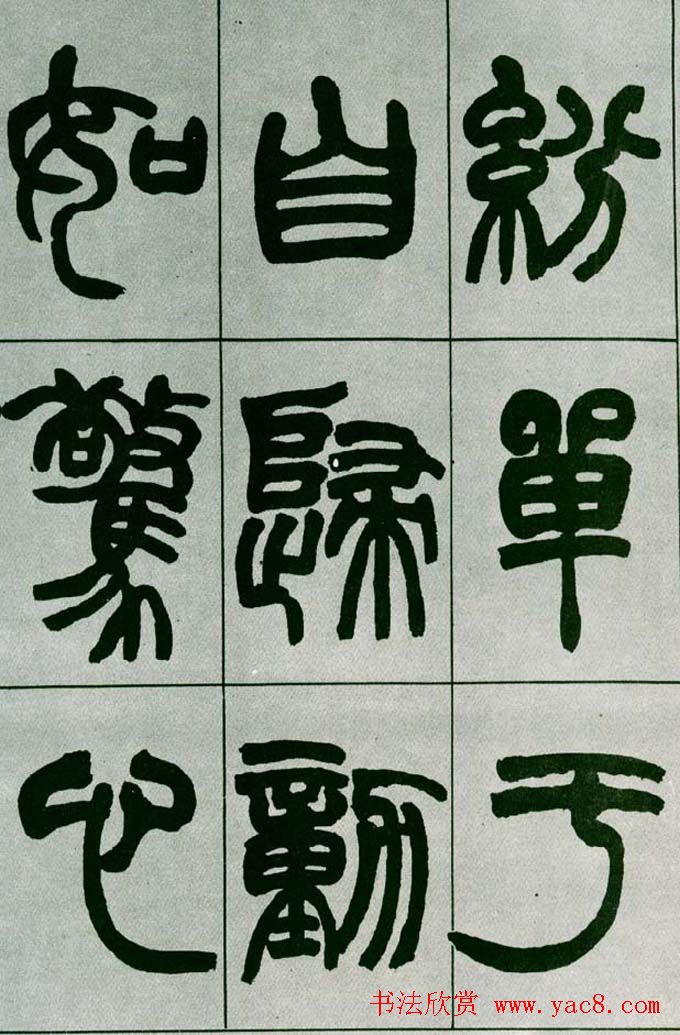 紛單于
自歸動
如驚也
书法欣赏 www.yac8.com